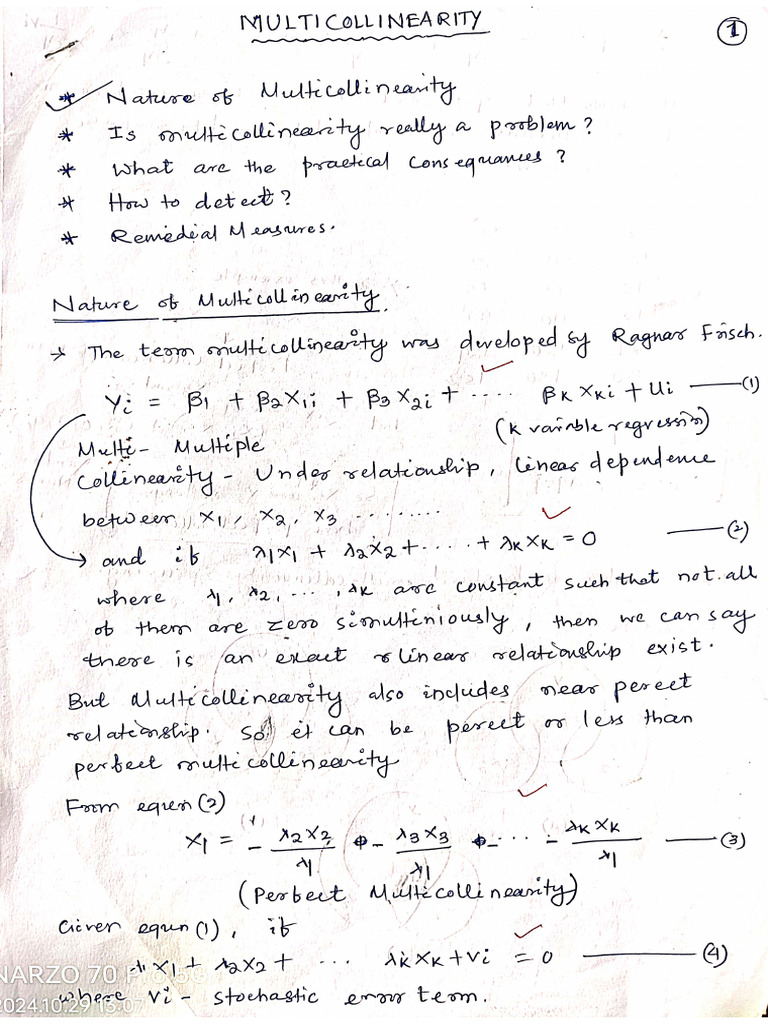 MULTICOLLINEARITY
1
* Nature of Multicollinearity
* Is multicollinearity really a problem?
* What are the practical Consequances?
* How to detect?
* Remedial Measures.
Nature of Multicollinearity.
→ The term multicollinearity was developed by Ragnar Frisch.
Yi = β1 + β2X1i + β3X2i + .... βK XKi + Ui —(1)
(K variable regression)
Multi- Multiple
Collinearity - Under relationship, linear dependence
between X1, X2, X3 ........
and if λ1X1 + λ2X2 + ..... + λKXK = 0 —(2)
where λ1, λ2, ..., λK are constant such that not all
of them are zero simultiniously, then we can say
there is an exact linear relationship exist.
But Multicollinearity also includes near perect
relationship. So it can be perect or less than
perfect multicollinearity
From equen (2)
X1 = - λ2X2/λ1 - λ3X3/λ1 - ... - λKXK/λ1 —(3)
(Perfect Multicollinearity)
Given equn (1), if
λ1X1 + λ2X2 + ... λKXK + Vi = 0 —(4)
where Vi - stochastic error term.
NARZO 70
2024.10.29 13:07